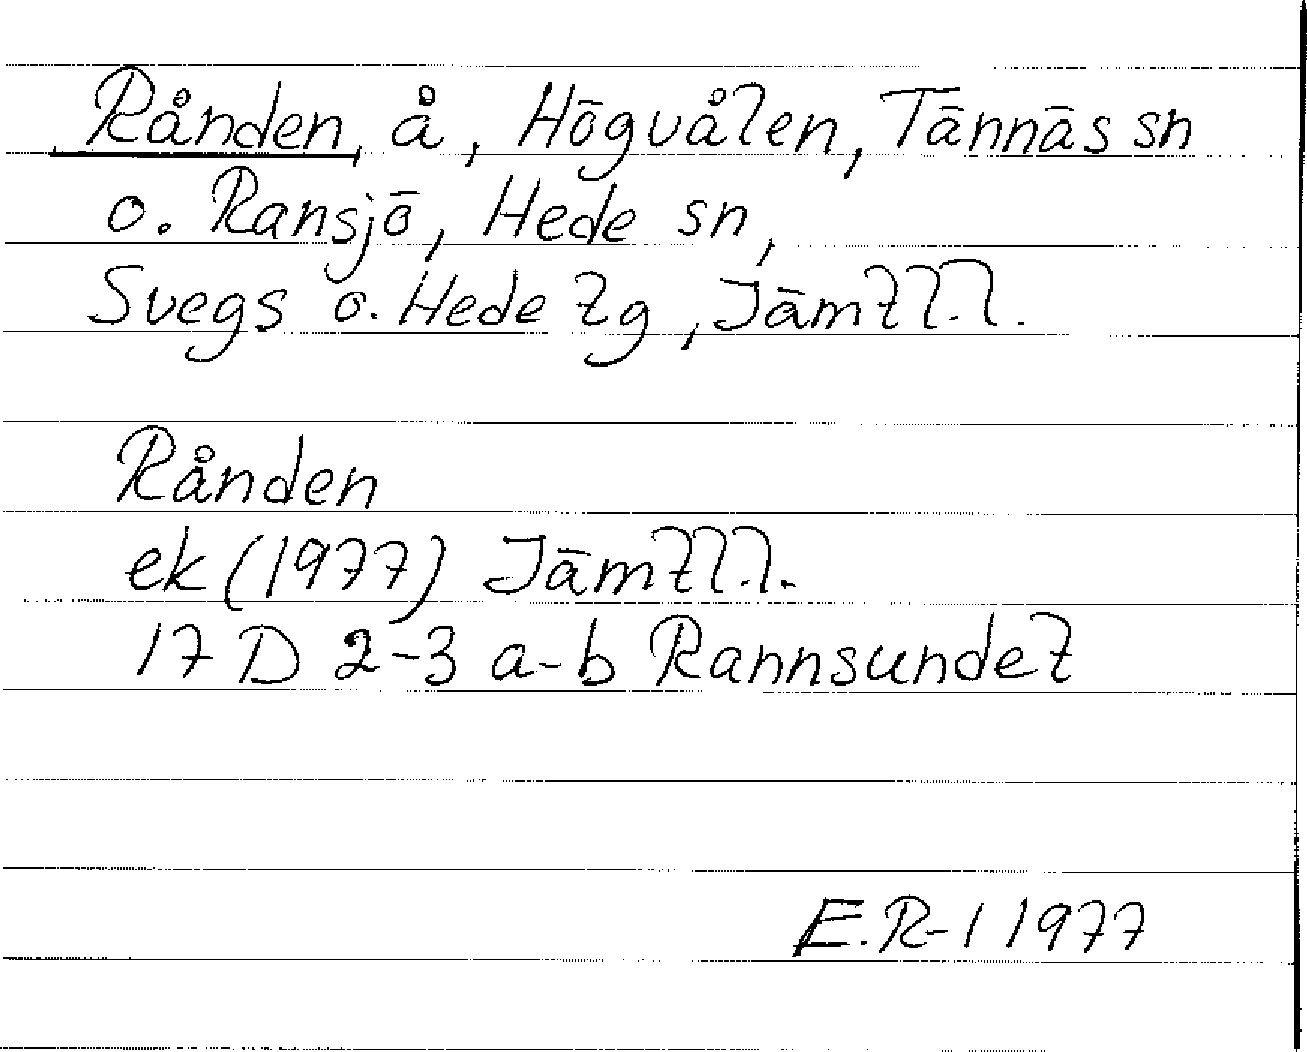 Rånden, å, Högvålen, Tännäs sn
o. Ransjö, Hede sn,
Svegs o. Hede tg, Jämtl.l.
Rånden
ek (1977) Jämtl.l.
17 D 2-3 a-b Rannsundet
E.R-l 1977